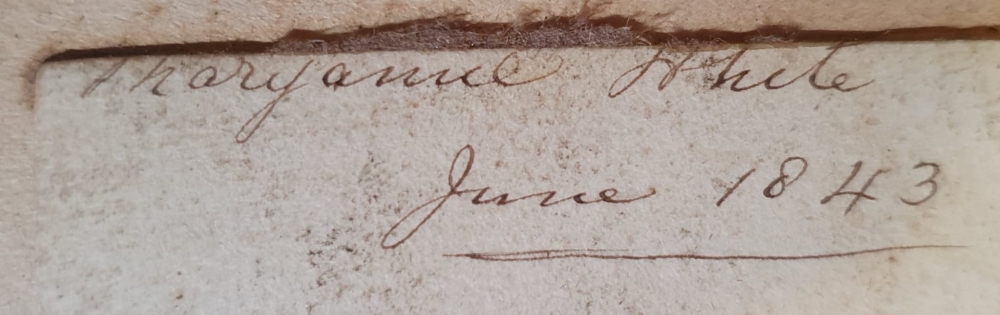 Maryanne White
June 1843